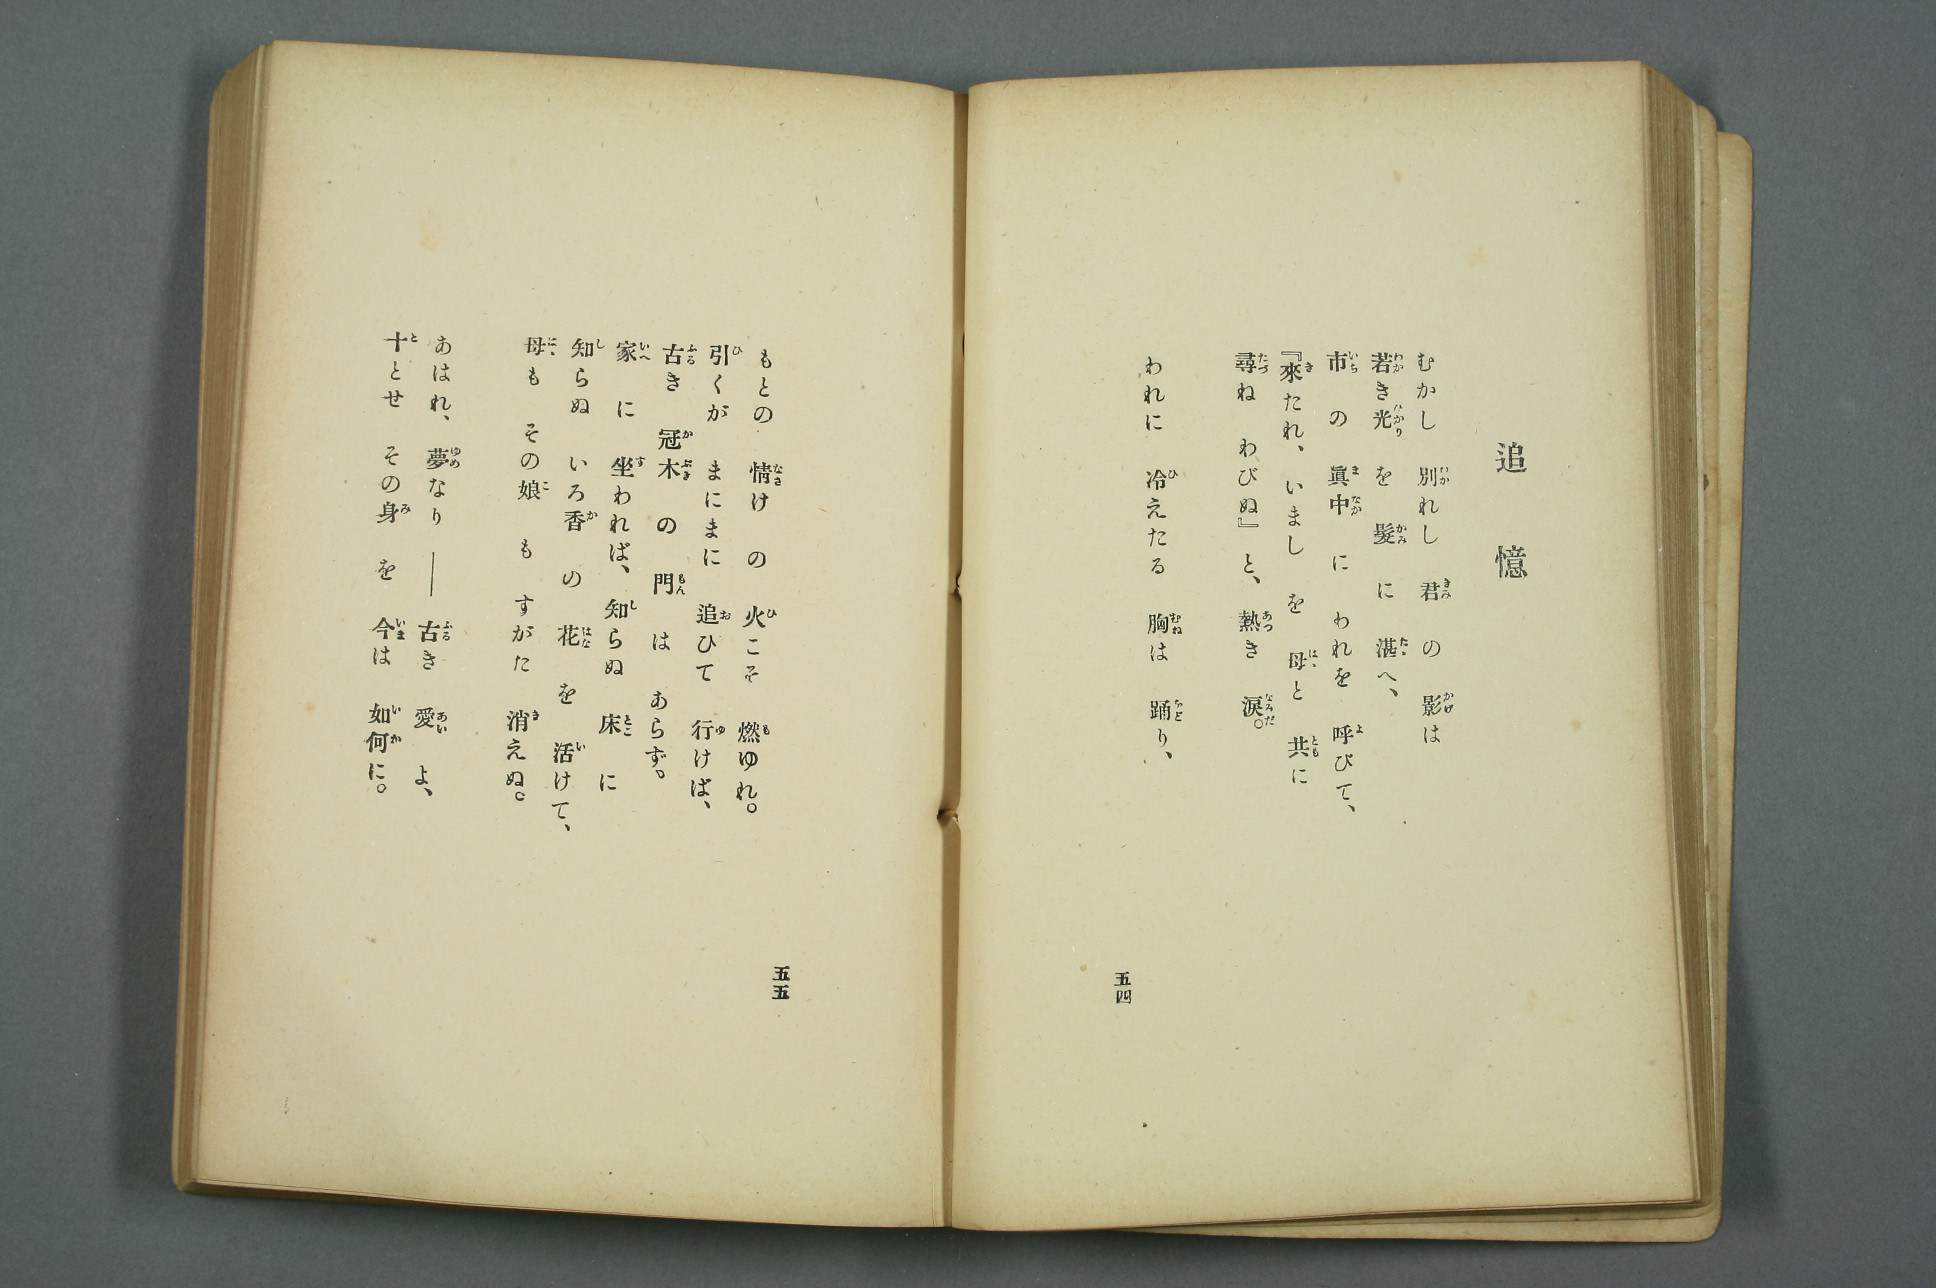 追憶
むかし 別れし 君 の 影は
若き光 を 髮 に 湛へ、
市 の 眞中 に われを 呼びて、
『來たれ、いまし を 母と 共に
尋ね わびぬ』と、熱き 淚。
われに 冷えたる 胸は 踊り、
五四
もとの 情け の 火こそ 燃ゆれ。
引くが まにまに 追ひて 行けば、
古き 冠木 の 門 は あらず。
家 に 坐われば、知らぬ 床 に
知らぬ いろ香 の 花 を 活けて、
母も その娘 も すがた 消えぬ。
あはれ、夢なり ── 古き 愛 よ、
十とせ その身 を 今は 如何に。
五五